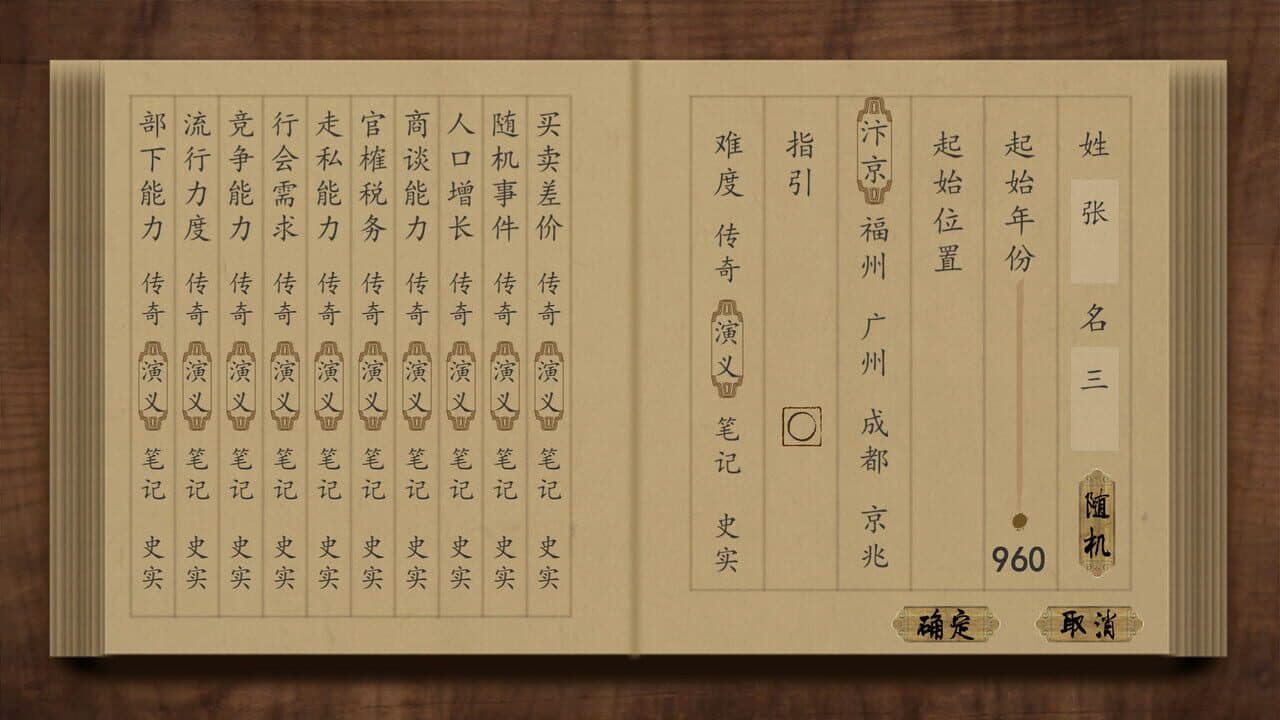 姓 张 名 三 随机
起始年份 960
起始位置
汴京 福州 广州 成都 京兆
指引
难度 传奇 演义 笔记 史实
买卖差价 传奇 演义 笔记 史实
随机事件 传奇 演义 笔记 史实
人口增长 传奇 演义 笔记 史实
商谈能力 传奇 演义 笔记 史实
官榷税务 传奇 演义 笔记 史实
走私能力 传奇 演义 笔记 史实
行会需求 传奇 演义 笔记 史实
竞争能力 传奇 演义 笔记 史实
流行力度 传奇 演义 笔记 史实
部下能力 传奇 演义 笔记 史实
确定
取消